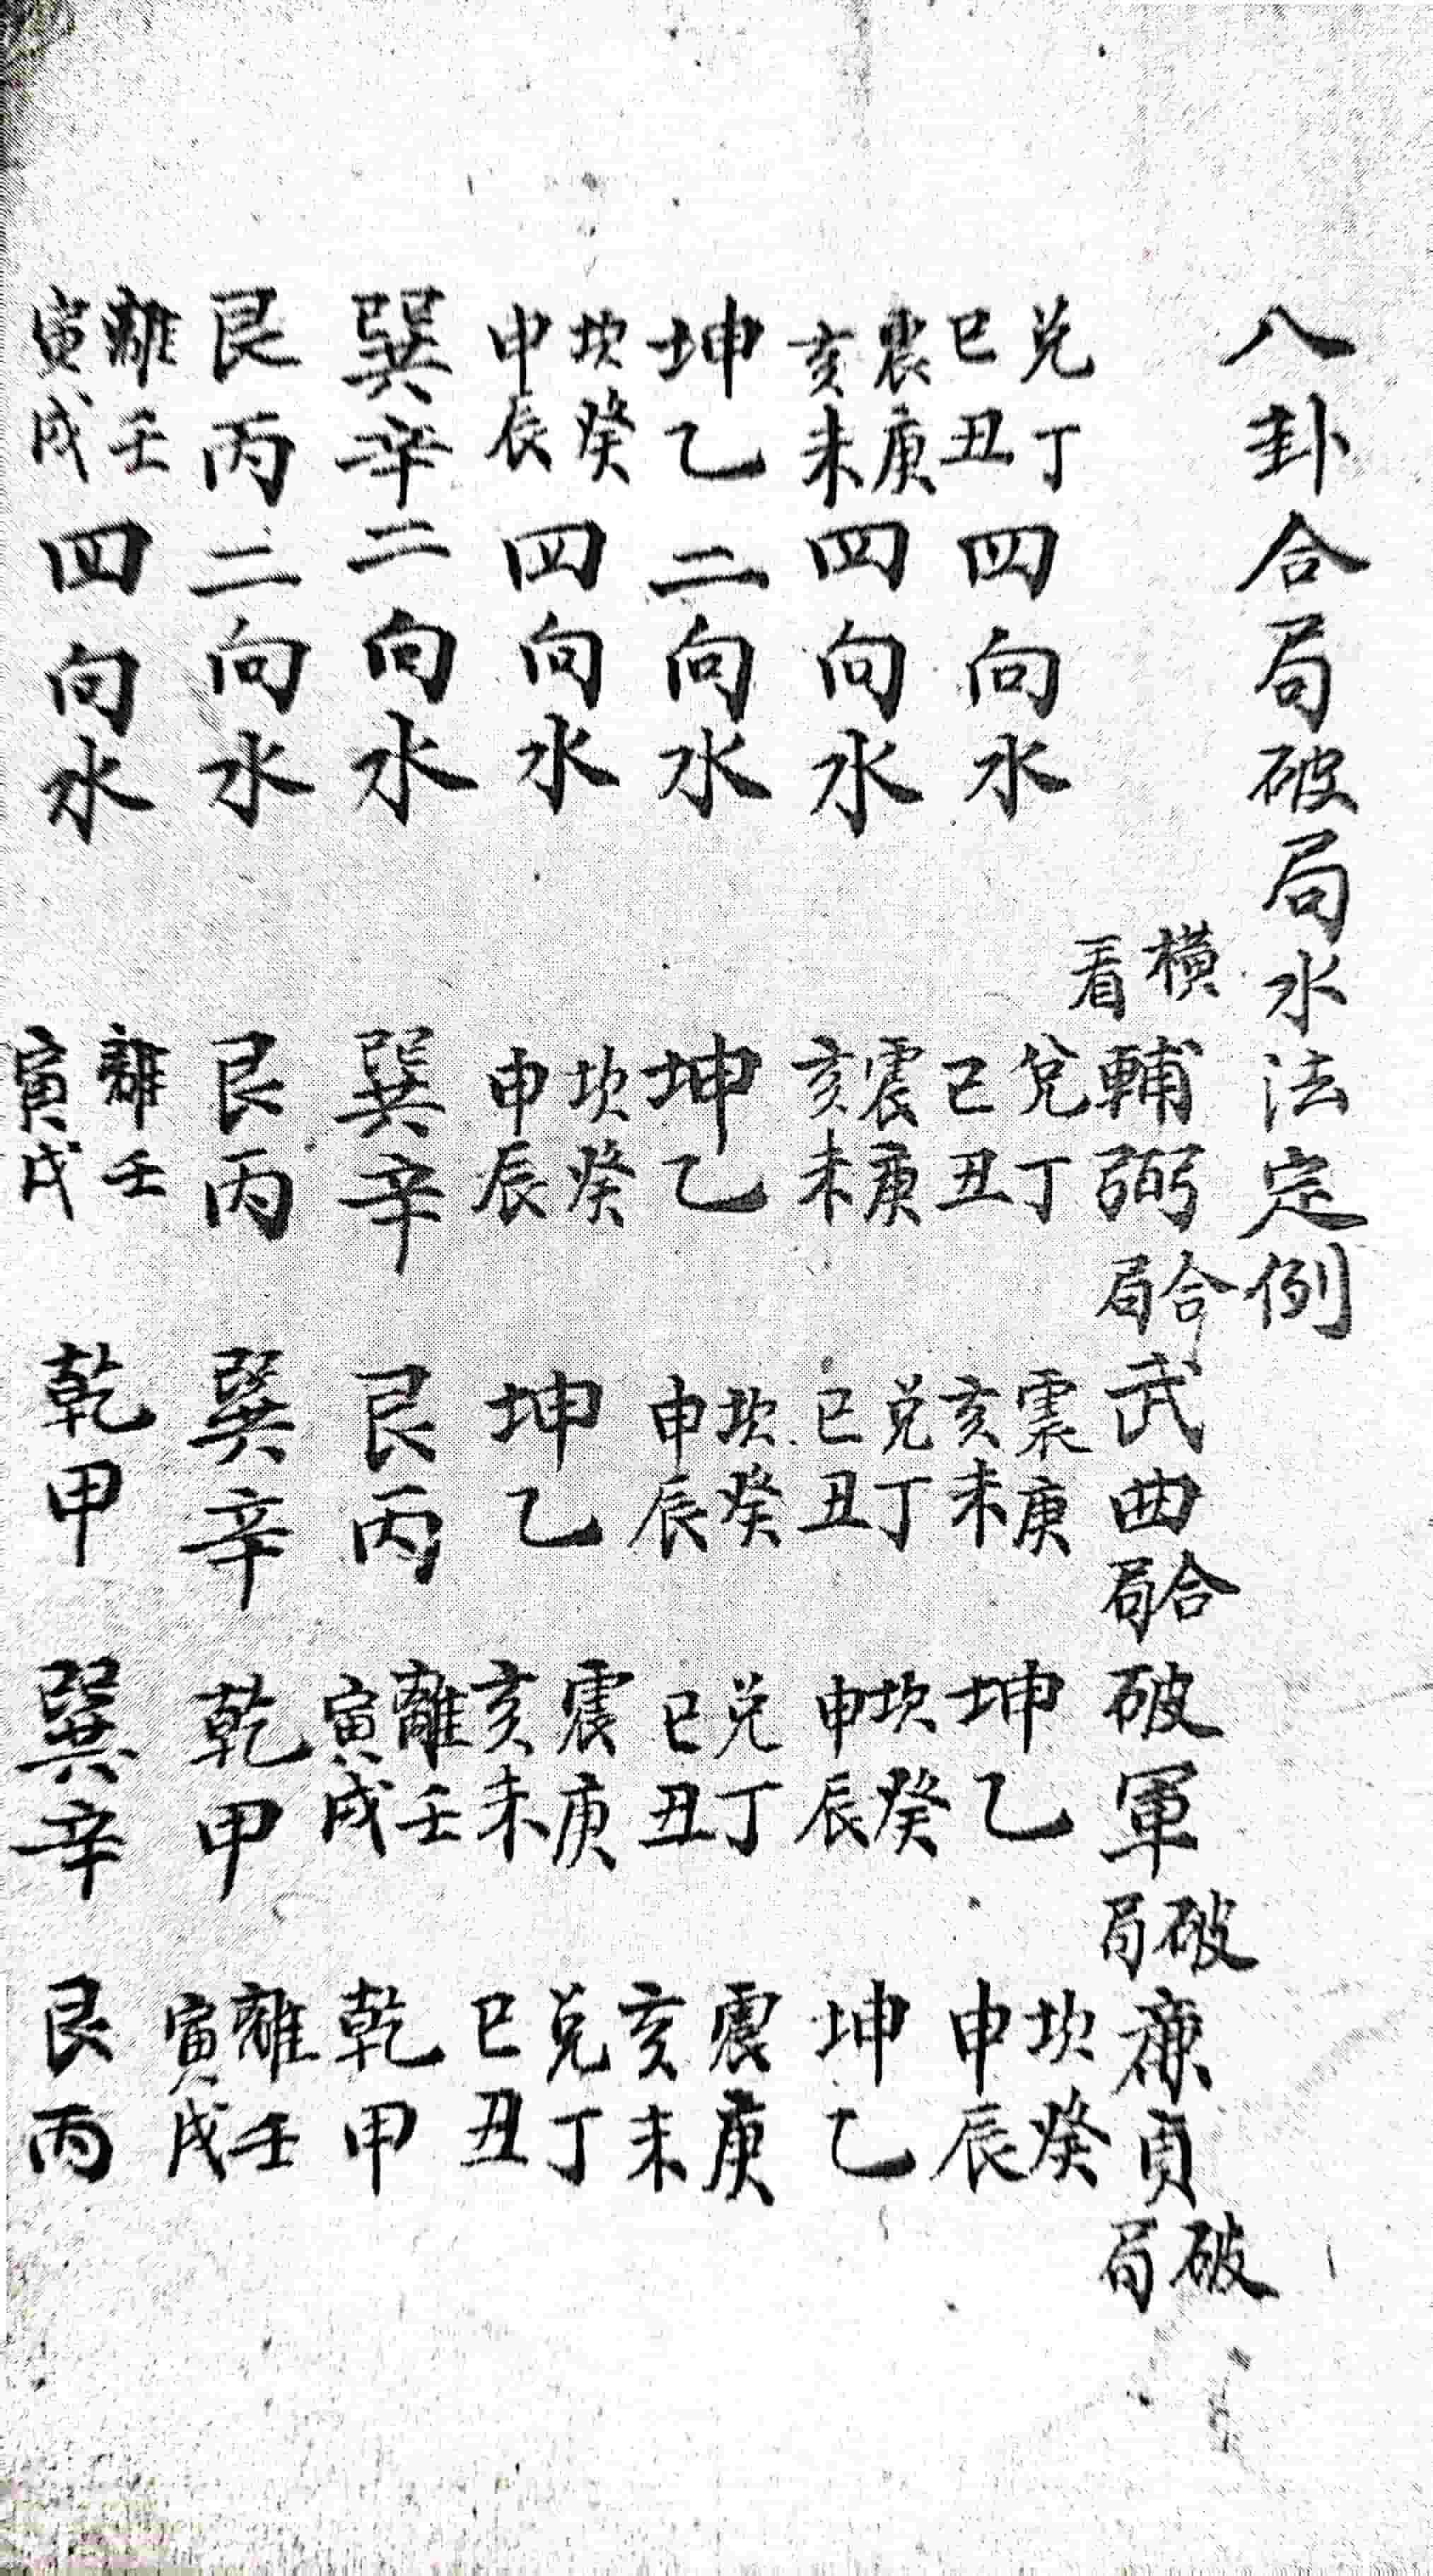 八卦合局破局水法定例
橫看 輔弼合局 武曲合局 破軍破局 廉貞破局
兑丁巳丑四向水 兌丁巳丑 震庚亥未 坤乙 坎癸申辰
震庚亥未四向水 震庚亥未 兑丁巳丑 坎癸申辰 坤乙
坤乙二向水 坤乙 坎癸申辰 兑丁巳丑 震庚亥未
坎癸申辰四向水 坎癸申辰 坤乙 震庚亥未 兑丁巳丑
巽辛二向水 巽辛 艮丙 離壬寅戌 乾甲
艮丙二向水 艮丙 巽辛 乾甲 離壬寅戌
離壬寅戌四向水 離壬寅戌 乾甲 巽辛 艮丙